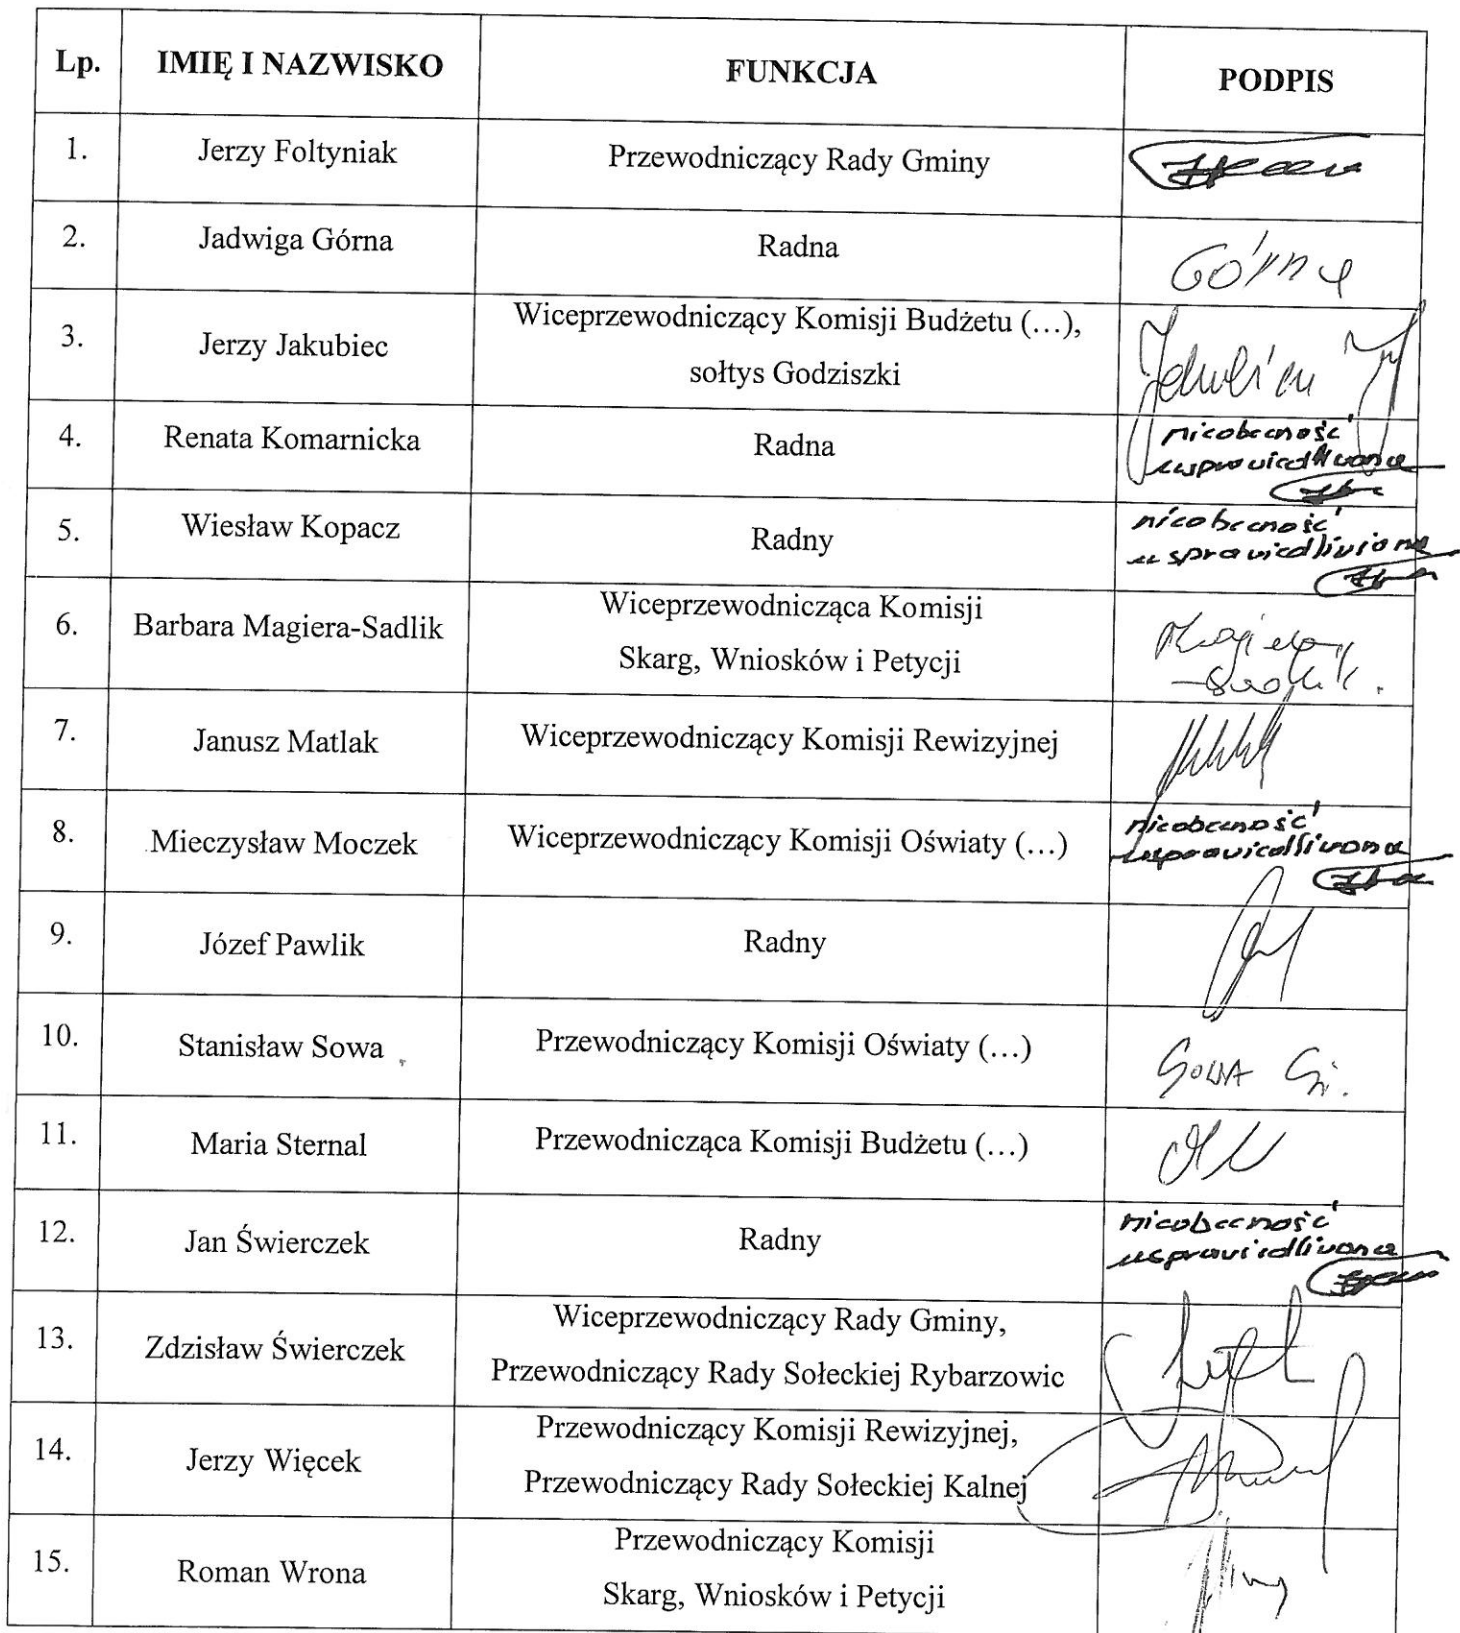 Lp. IMIĘ I NAZWISKO FUNKCJA PODPIS
1. Jerzy Foltyniak Przewodniczący Rady Gminy
2. Jadwiga Górna Radna Górna
3. Jerzy Jakubiec Wiceprzewodniczący Komisji Budżetu (…),
sołtys Godziszki
4. Renata Komarnicka Radna nieobecność
usprawiedliwiona
5. Wiesław Kopacz Radny nieobecność
usprawiedliwiona
6. Barbara Magiera-Sadlik Wiceprzewodnicząca Komisji Magiera
Skarg, Wniosków i Petycji -Sadlik.
7. Janusz Matlak Wiceprzewodniczący Komisji Rewizyjnej
8. Mieczysław Moczek Wiceprzewodniczący Komisji Oświaty (…) nieobecność
usprawiedliwiona
9. Józef Pawlik Radny
10. Stanisław Sowa Przewodniczący Komisji Oświaty (…) Sowa
11. Maria Sternal Przewodnicząca Komisji Budżetu (…)
12. Jan Świerczek Radny nieobecność
usprawiedliwiona
13. Zdzisław Świerczek Wiceprzewodniczący Rady Gminy,
Przewodniczący Rady Sołeckiej Rybarzowic
14. Jerzy Więcek Przewodniczący Komisji Rewizyjnej,
Przewodniczący Rady Sołeckiej Kalnej
15. Roman Wrona Przewodniczący Komisji
Skarg, Wniosków i Petycji